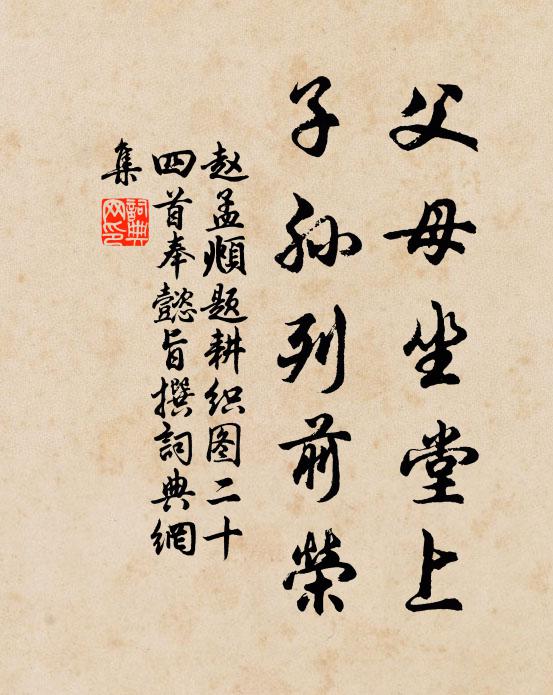 父母坐堂上
子孙列前荣
赵孟頫题耕织图二十
四首奉懿旨撰詞典網
集
詞典网印